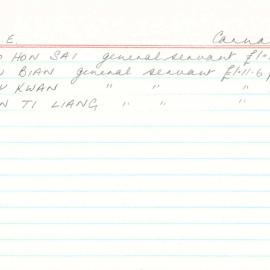 .E. Carna
HON SAI general servant £1.
BIAN general servant £1.11.6
KWAN " " "
TI LIANG " " "